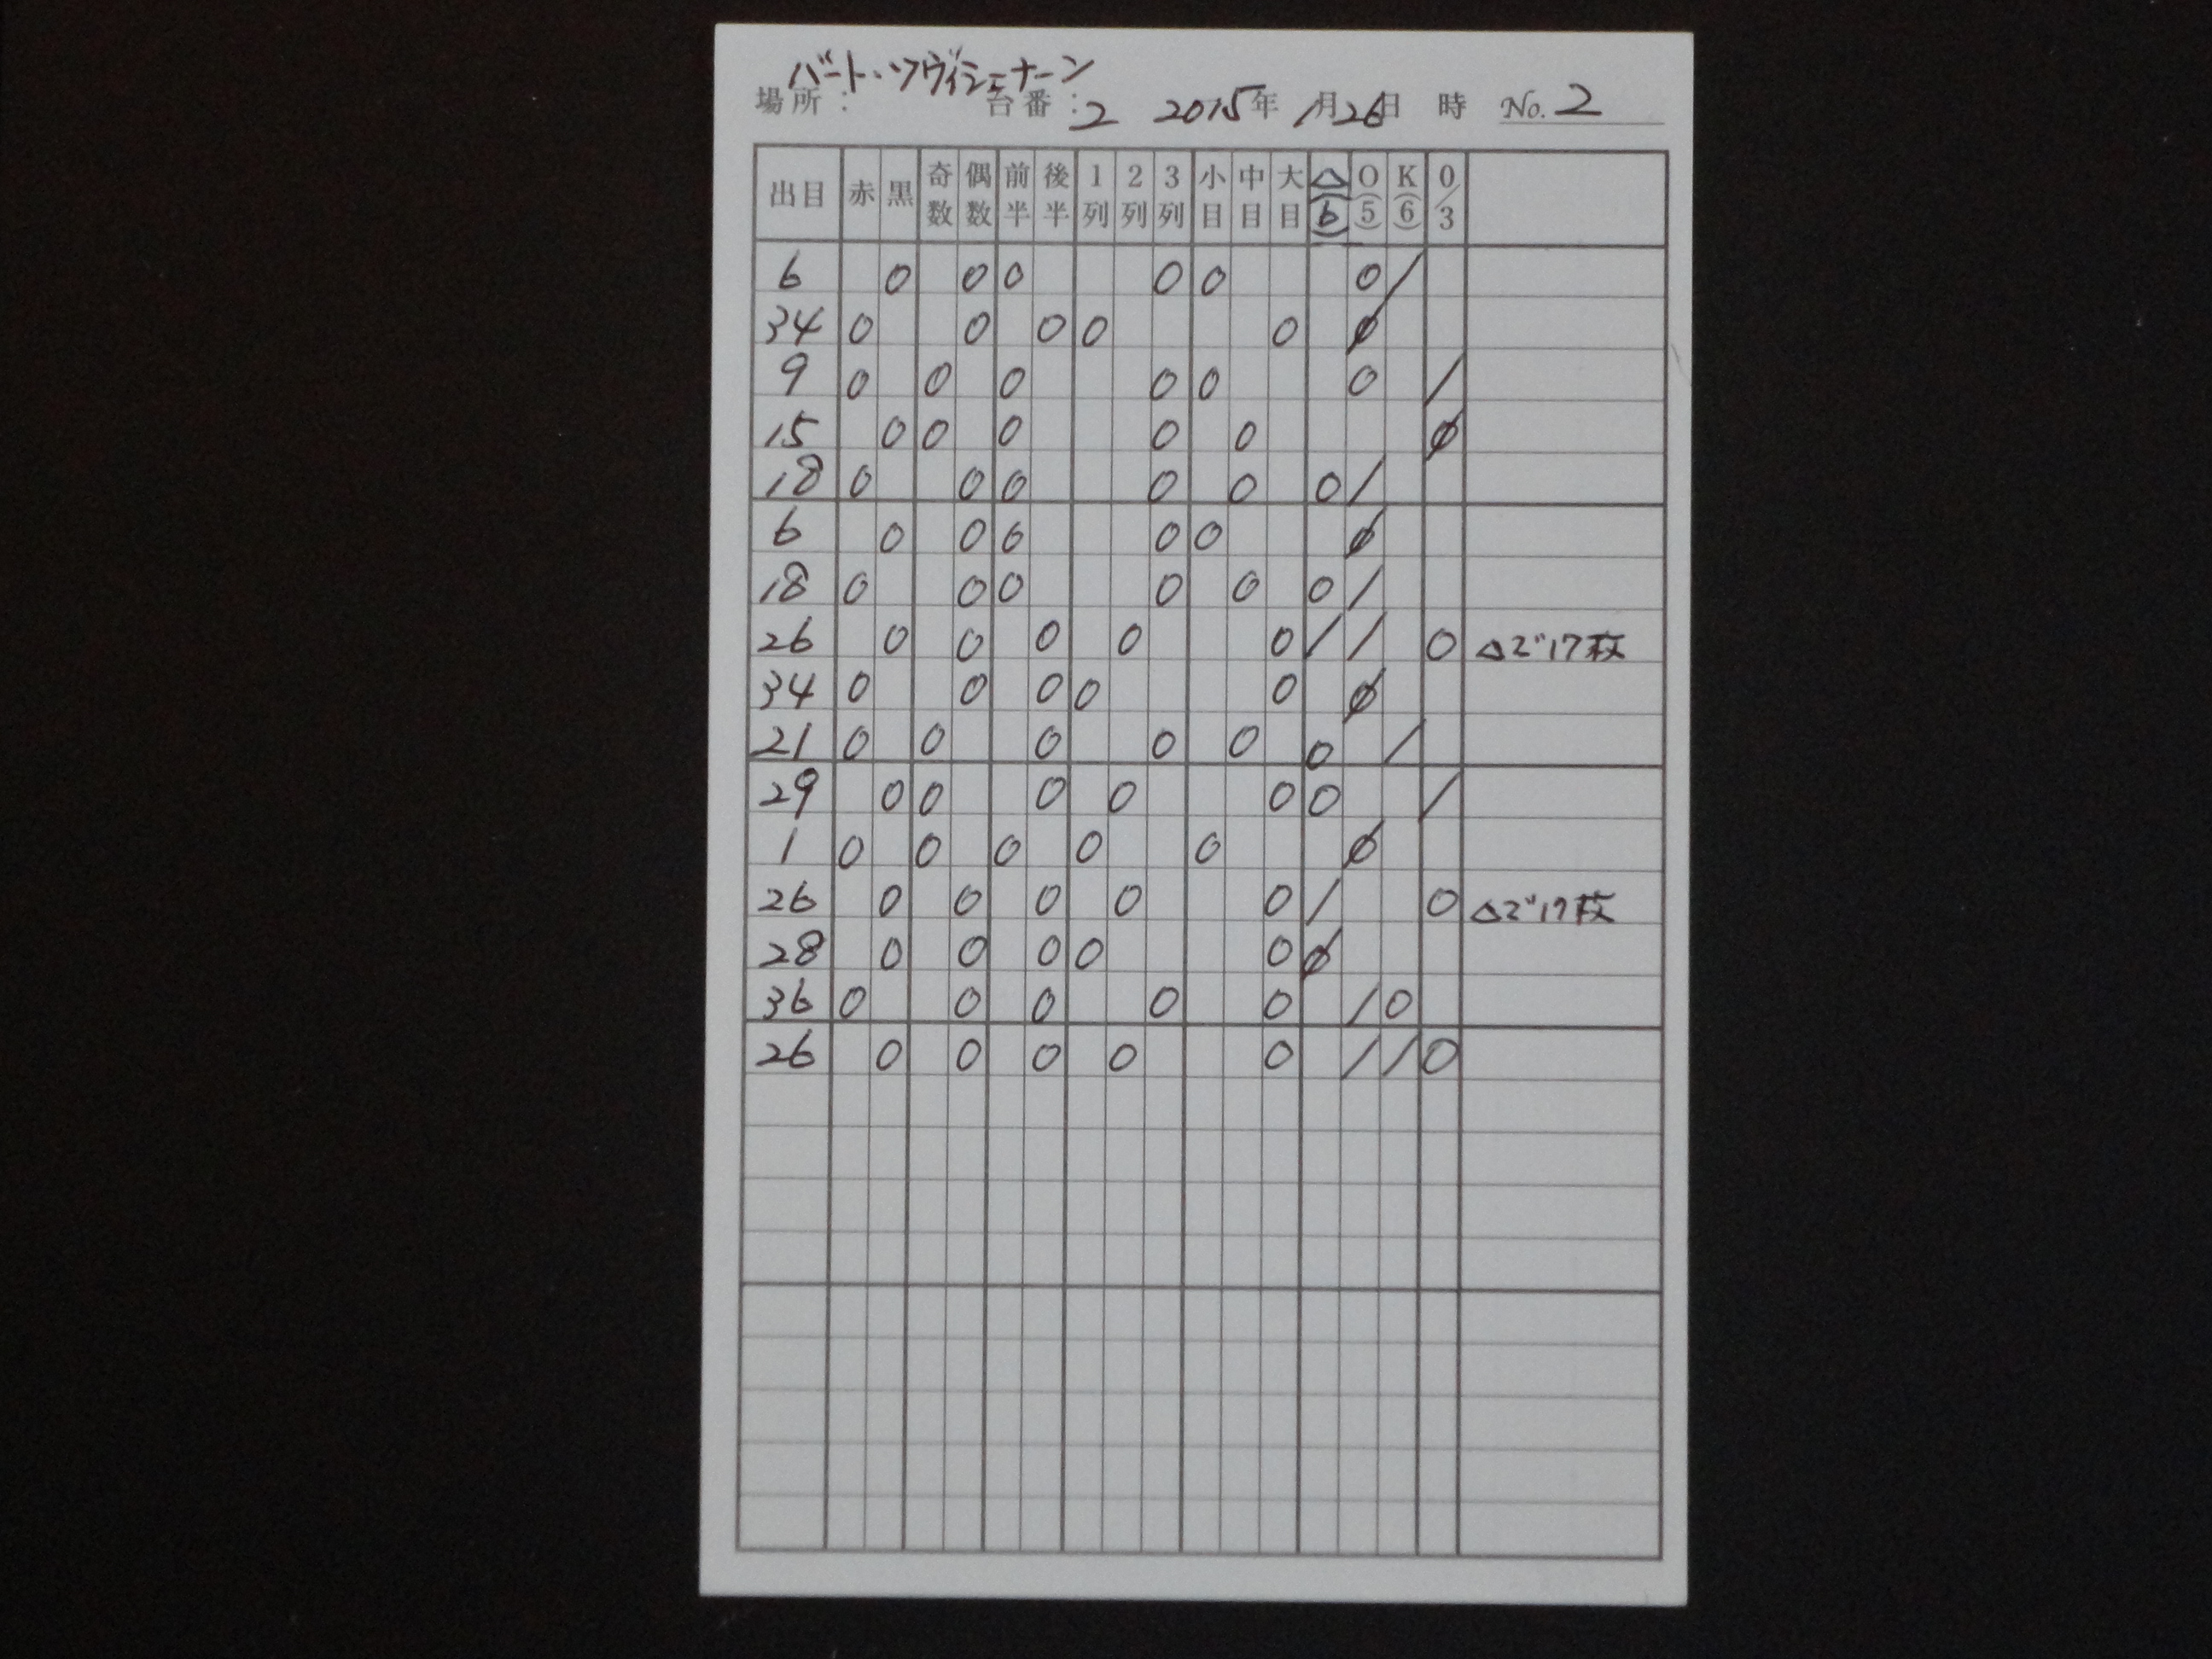 バート・ソヴィシェナーン
場所： 台番：2 2015年 1月26日 時 No. 2
出目 赤 黒 奇数 偶数 前半 後半 1列 2列 3列 小目 中目 大目 △(6) O(5) K(6) 0/3
6 0 0 0 0 0 0 /
34 0 0 0 0 0 ∅
9 0 0 0 0 0 0 /
15 0 0 0 0 0 ∅
18 0 0 0 0 0 0 /
6 0 0 0 0 0 ∅
18 0 0 0 0 0 0 /
26 0 0 0 0 0 / / 0 △で17枚
34 0 0 0 0 0 ∅
21 0 0 0 0 0 0 /
29 0 0 0 0 0 0 /
1 0 0 0 0 0 ∅
26 0 0 0 0 0 / 0 △で17枚
28 0 0 0 0 0 ∅
36 0 0 0 0 0 / 0
26 0 0 0 0 0 / / 0